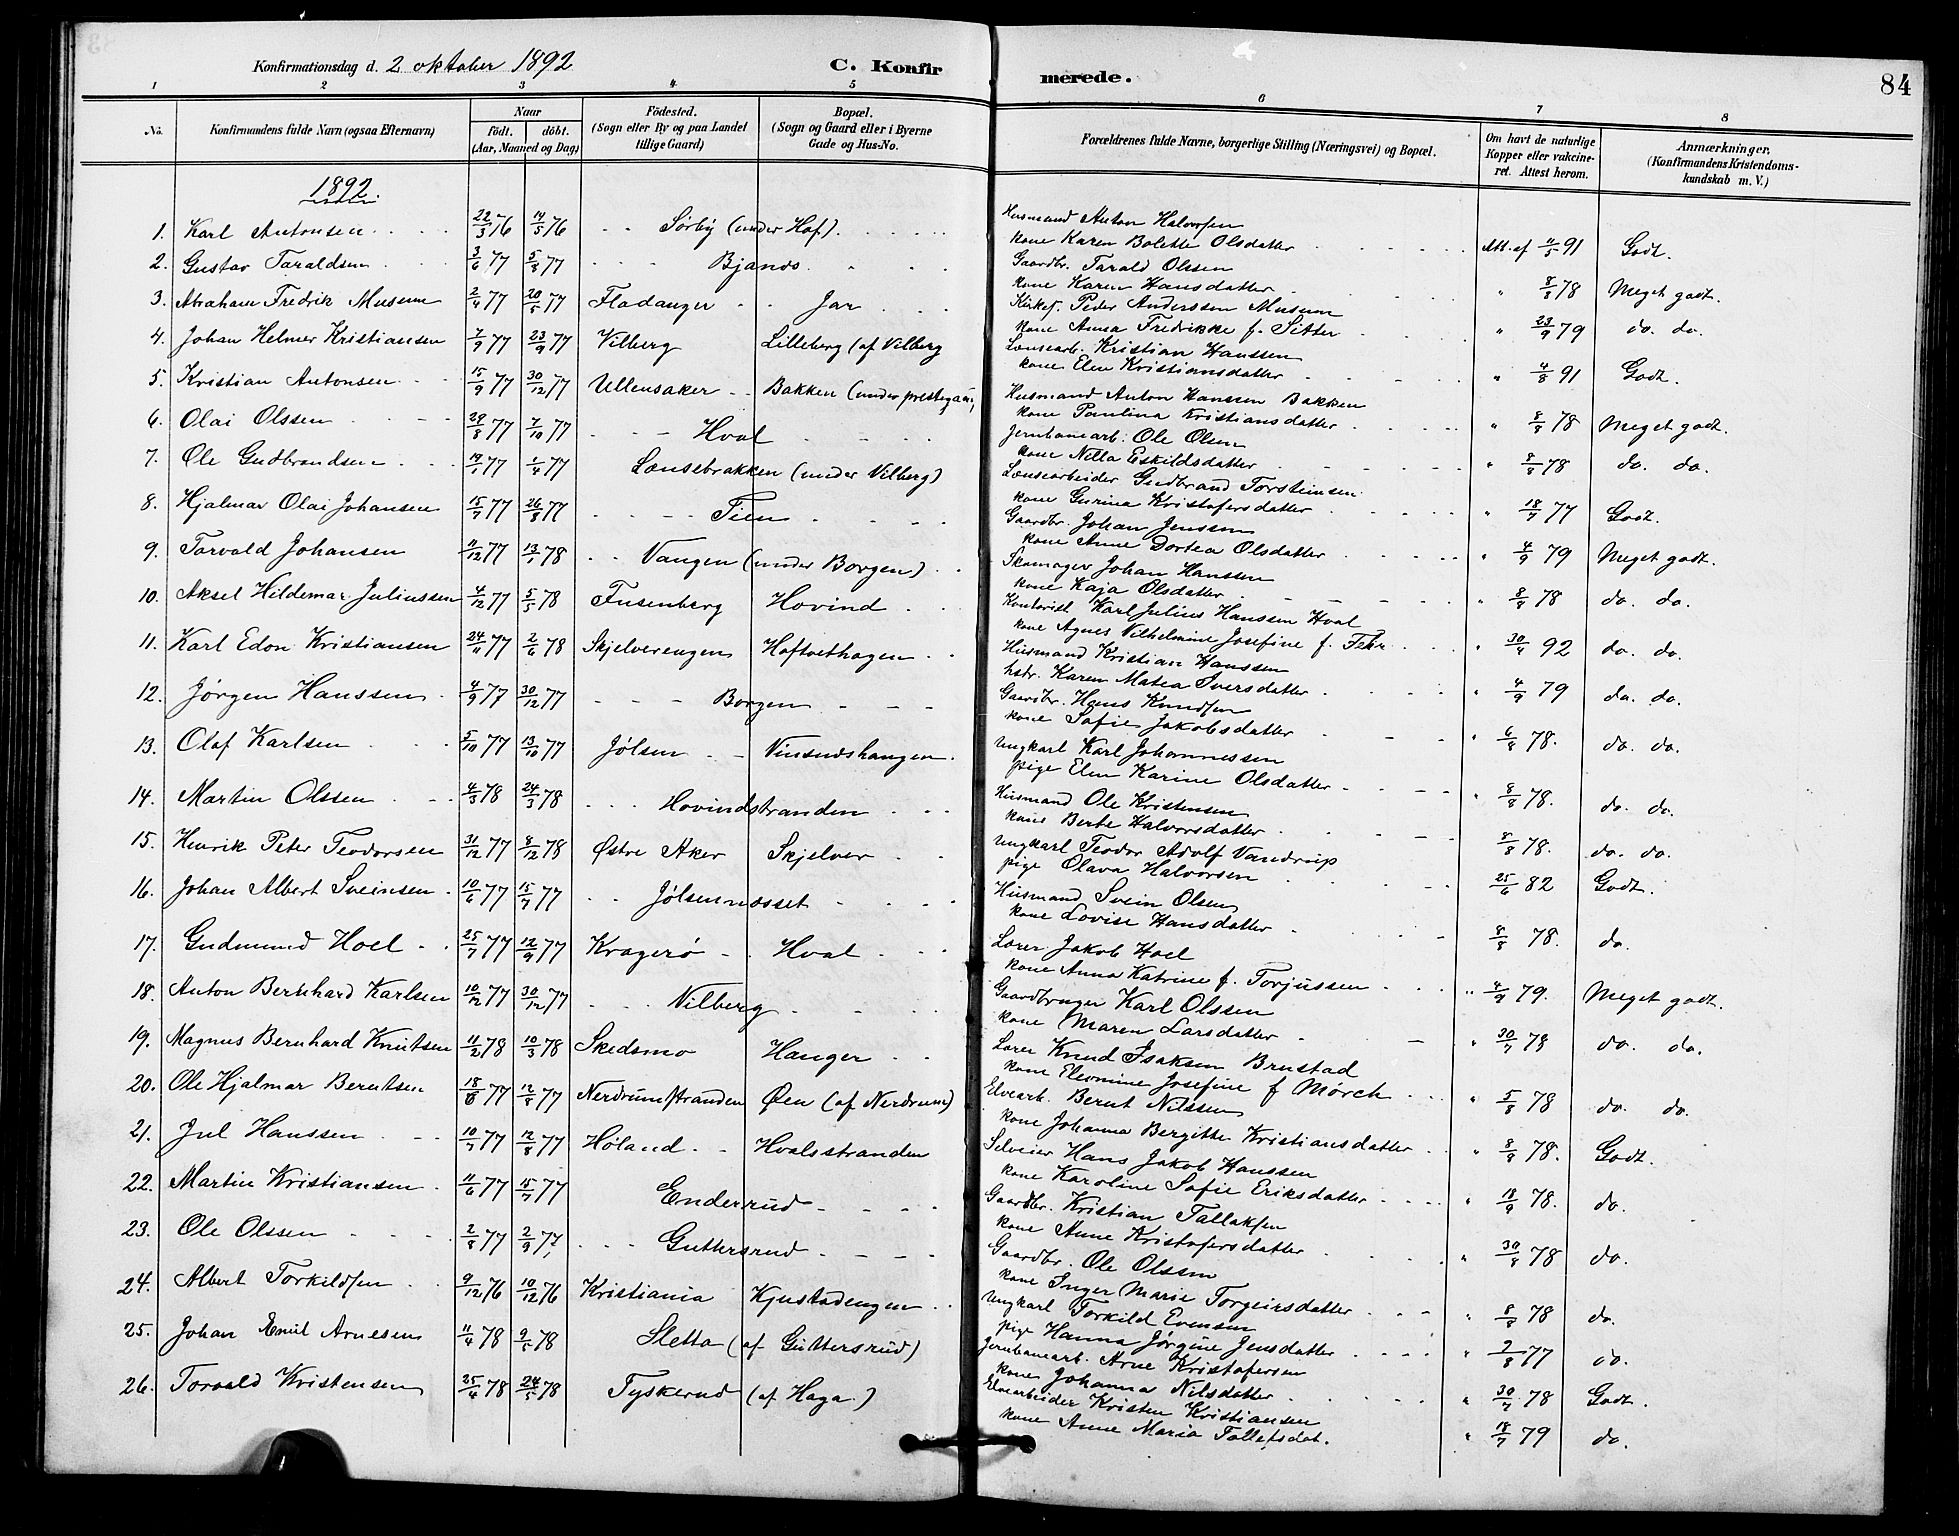 Konfirmationsdag d. 2 oktober 1892
C. Konfir
merede.
84
1 2 3 4 5 6 7 8
No. Konfirmandens fulde Navn (ogsaa Efternavn) Naar födt. döbt. (Aar, Maaned og Dag) Födested. (Sogn eller By og paa Landet tillige Gaard) Bopæl. (Sogn og Gaard eller i Byerne Gade og Hus-No. Forældrenes fulde Navne, borgerlige Stilling (Næringsvei) og Bopæl. Om havt de naturlige Kopper eller vakcineret. Attest herom. Anmærkninger. (Konfirmandens Kristendomskundskab m. V.)
1892.
1. Karl Antonsen 22/3 76 14/5 76 Sørby (under Hof) Husmand Anton Halvorsen
kone Karen Bolette Olsdatter Att. af 11/5 91 Godt.
2. Gustav Taraldsen 3/6 77 5/8 77 Bjanes Gaardbr. Tarald Olssen
kone Karen Hansdatter " 8/8 78 Meget godt.
3. Abraham Fredrik Museum 2/4 77 20/5 77 Fladanger Jar Kirkes. Peder Anderssen Museum
kone Anna Fredrikke f. Sitter " 23/9 79 do. do.
4. Johan Helmer Kristiansen 7/9 77 23/9 77 Vilberg Lilleberg (af Vilberg Lænsearb. Kristian Hanssen
kone Elen Kristiansdatter " 4/8 91 Godt.
5. Kristian Antonsen 15/9 77 30/12 77 Ullensaker Bakken (under prestegaar, Husmand Anton Hanssen Bakken
kone Paulina Kristiansdatter " 8/8 78 Meget godt.
6. Olai Olssen 28/8 77 7/10 77 Hval Jernbanearb. Ole Olsen
kone Nilla Eskildsdatter " 8/8 78 do. do.
7. Ole Gudbrandsen 14/1 77 1/4 77 Lænsebrakken (under Vilberg) Lænsearbeider Gudbrand Torsteinsen
kone Gurina Kristofersdatter " 18/7 77 Godt.
8. Hjalmar Olai Johansen 15/7 77 26/8 77 Tien Gaardbr. Johan Jenssen
kone Anne Dortea Olsdatter " 4/9 79 Meget godt.
9. Torvald Johansen 11/12 77 13/1 78 Vangen (under Borgen) Skomager Johan Hanssen
kone Kaja Olsdatter " 8/8 78 do. do.
10. Aksel Hildemar Juliussen 4/12 77 5/5 78 Fusenberg Hovind Kontorist Karl Julius Hanssen Hval
kone Agnes Vilhelmine Josefine f. Fehr " 30/4 92 do. do.
11. Karl Edon Kristiansen 24/11 77 2/6 78 Skjelverengen Hoftvethagen Husmand Kristian Hanssen
hstr. Karen Matea Iversdatter " 4/9 79 do. do.
12. Jørgen Hanssen 4/9 77 30/12 77 Borgen Gaardbr. Hans Knudsen
kone Sofie Jakobsdatter " 6/8 78. do. do.
13. Olaf Karlsen 5/10 77 13/10 77 Jølsen Vinsnushangen Ungkarl Karl Johannessen
pige Elen Karine Olsdatter " 8/8 78. do. do.
14. Martin Olssen 4/3 78 24/3 78 Hovindstranden Husmand Ole Kristensen
kone Berte Halvorsdatter 8/8 78. do. do.
15. Henrik Peter Teodorsen 31/12 77 8/12 78 Østre Aker Skjelver Ungkarl Teodor Adolf Vandrup
pige Olava Halvorsen 25/6 82 Godt.
16. Johan Albert Sveinsen 10/6 77 15/7 77 Jølsennæsset Husmand Svein Olsen
kone Lovise Hansdatter 8/8 78. do.
17. Gudmund Hoel 25/7 77 12/9 77 Kragerø Hval Lærer Jakob Hoel
kone Anna Katrine f. Torjussen " 4/9 79. Meget godt.
18. Anton Bernhard Karlsen 10/12 77 30/12 77 Vilberg Gaardbruger Karl Olssen
kone Maren Larsdatter " 30/7 78 do. do.
19. Magnus Bernhard Knutsen 11/2 78 10/3 78 Skedsmo Hanger Lærer Knud Isaksen Brustad
kone Eleonine Josefine f Mørch " 5/8 78 do. do.
20. Ole Hjalmar Berntsen 18/6 77 12/8 77 Nerdrumstranden Øen (af Nerdrum) Elvearb. Bernt Nilssen
kone Johanna Bergitte Kristiansdatter " 8/8 78. Godt.
21. Jul Hanssen 10/7 77 12/8 77 Høland Hvalsstranden Selveier Hans Jakob Hanssen
kone Karoline Sofie Eriksdatter " 18/9 78. do.
22. Martin Kristiansen 11/6 77 15/7 77 Enderrud Gaardbr. Kristian Tallaksen
kone Anne Kristofersdatter " 30/8 78 do.
23. Ole Olssen 2/8 77 2/9 77 Guttersrud Gaardbr. Ole Olssen
kone Inger Marie Torgeirsdatter " 8/8 78 do.
24. Albert Torkildsen 9/12 76 10/12 76 Kristiania Kjustadengen Ungkarl Torkild Evensen
pige Hanna Jørgine Jensdatter " 2/8 77 do.
25. Johan Emil Arnesen 11/4 78 9/5 78 Sletta (af Guttersrud) Jernbanearb. Arne Kristofersen
kone Johanna Nilsdatter " 30/7 78 Godt.
26. Torvald Kristensen 25/4 78 24/5 78 Tyskerud (af Haga) Elvearbeider Kristen Kristiansen
kone Anne Maria Tollefsdat. " 18/7 79 do.